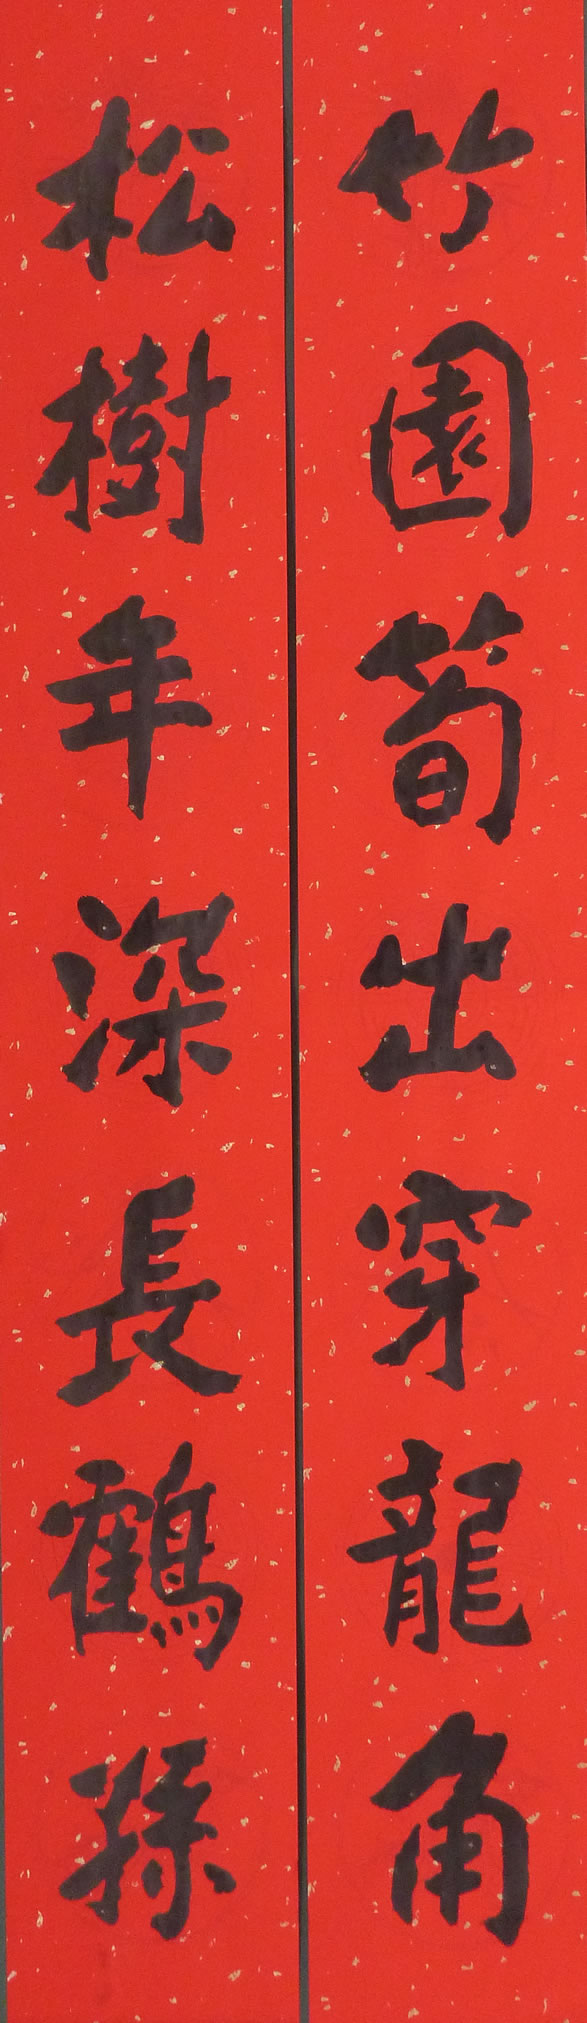 竹園筍出穿龍角
松樹年深長鶴孫